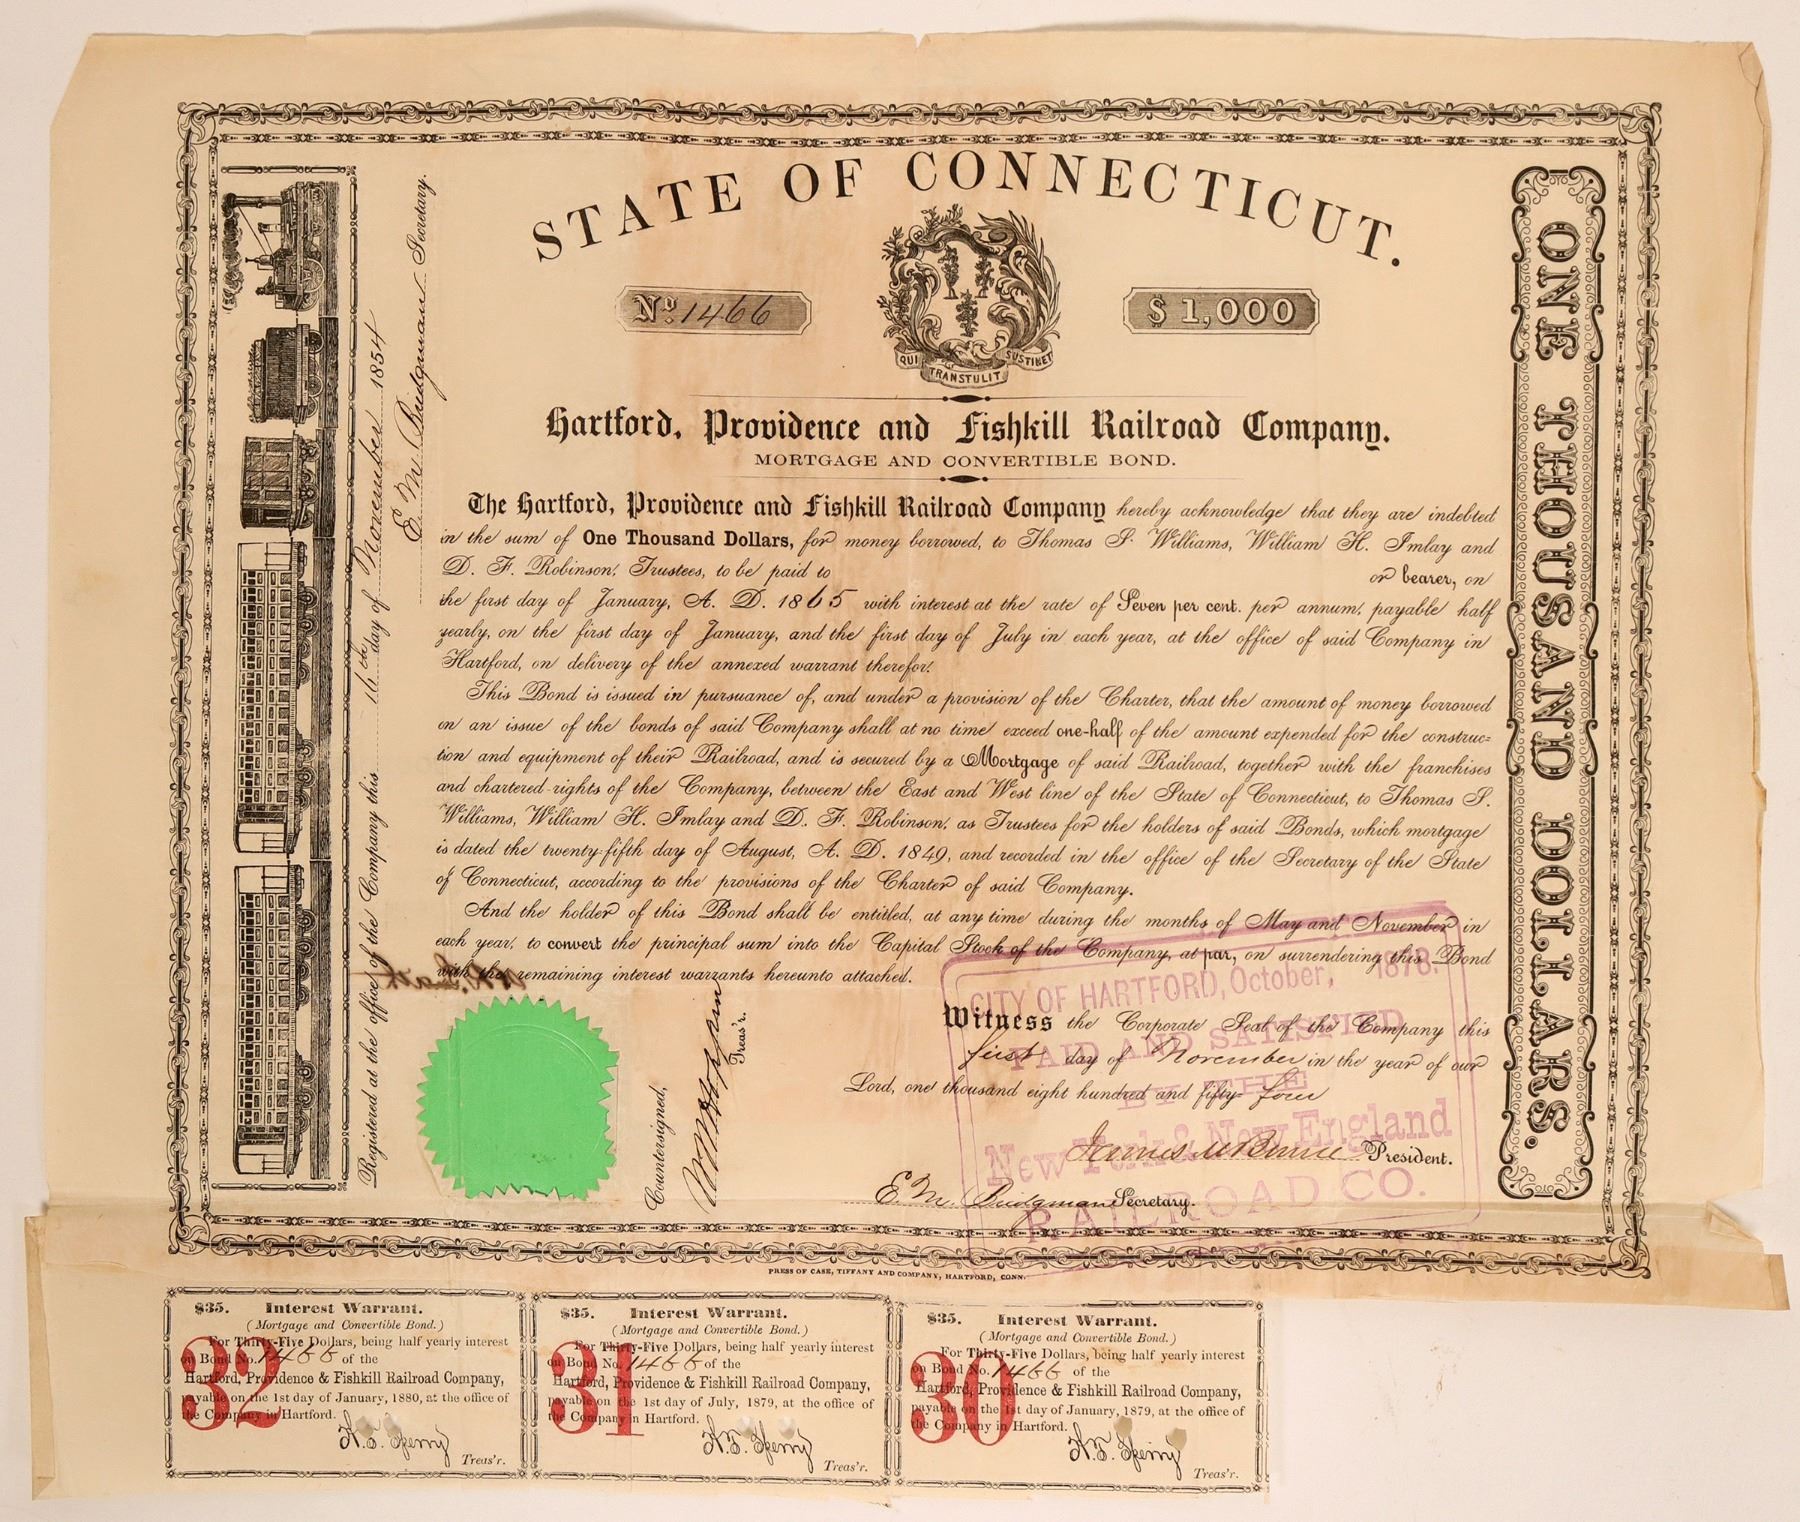 STATE OF CONNECTICUT.
No. 1466
$1,000
QUI TRANSTULIT SUSTINET
Hartford, Providence and Fishkill Railroad Company.
MORTGAGE AND CONVERTIBLE BOND.
The Hartford, Providence and Fishkill Railroad Company hereby acknowledge that they are indebted
in the sum of One Thousand Dollars, for money borrowed, to Thomas S. Williams, William H. Imlay and
D. F. Robinson, Trustees, to be paid to or bearer, on
the first day of January, A. D. 1865 with interest at the rate of Seven per cent. per annum, payable half
yearly, on the first day of January, and the first day of July in each year, at the office of said Company in
Hartford, on delivery of the annexed warrant therefor.
This Bond is issued in pursuance of, and under a provision of the Charter, that the amount of money borrowed
on an issue of the bonds of said Company shall at no time exceed one-half of the amount expended for the construc=
tion and equipment of their Railroad, and is secured by a Mortgage of said Railroad, together with the franchises
and chartered-rights of the Company, between the East and West line of the State of Connecticut, to Thomas S.
Williams, William H. Imlay and D. F. Robinson, as Trustees for the holders of said Bonds, which mortgage
is dated the twenty-fifth day of August, A. D. 1849, and recorded in the office of the Secretary of the State
of Connecticut, according to the provisions of the Charter of said Company.
And the holder of this Bond shall be entitled, at any time during the months of May and November in
each year, to convert the principal sum into the Capital Stock of the Company, at par, on surrendering this Bond
with the remaining interest warrants hereunto attached.
Witness the Corporate Seal of the Company this
first day of November in the year of our
Lord, one thousand eight hundred and fifty-four
President.
E M Bridgman Secretary.
Countersigned,
Treas'r.
CITY OF HARTFORD, October, 1878.
PAID AND SATISFIED
BY THE
New York & New England
RAILROAD CO.
Registered at the office of the Company this 16th day of November 1854
E M Bridgman Secretary.
ONE THOUSAND DOLLARS.
PRESS OF CASE, TIFFANY AND COMPANY, HARTFORD, CONN.
$35. Interest Warrant.
(Mortgage and Convertible Bond.)
For Thirty-Five Dollars, being half yearly interest
on Bond No. 1466 of the
Hartford, Providence & Fishkill Railroad Company,
payable on the 1st day of January, 1880, at the office of
the Company in Hartford.
32
Treas'r.
$35. Interest Warrant.
(Mortgage and Convertible Bond.)
For Thirty-Five Dollars, being half yearly interest
on Bond No. 1466 of the
Hartford, Providence & Fishkill Railroad Company,
payable on the 1st day of July, 1879, at the office of
the Company in Hartford.
31
Treas'r.
$35. Interest Warrant.
(Mortgage and Convertible Bond.)
For Thirty-Five Dollars, being half yearly interest
on Bond No. 1466 of the
Hartford, Providence & Fishkill Railroad Company,
payable on the 1st day of January, 1879, at the office of
the Company in Hartford.
30
Treas'r.